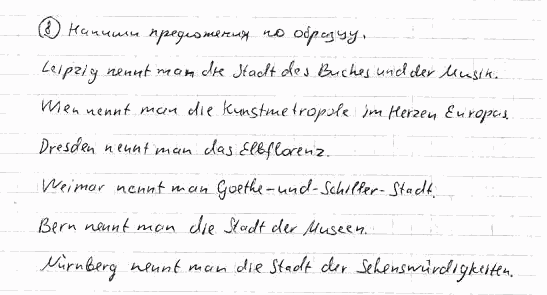 ⑧ Напиши предложения по образцу.
Leipzig nennt man die Stadt des Buches und der Musik.
Wien nennt man die Kunstmetropole im Herzen Europas.
Dresden nennt man das Elbflorenz.
Weimar nennt man Goethe-und-Schiller-Stadt.
Bern nennt man die Stadt der Museen.
Nürnberg nennt man die Stadt der Sehenswürdigkeiten.